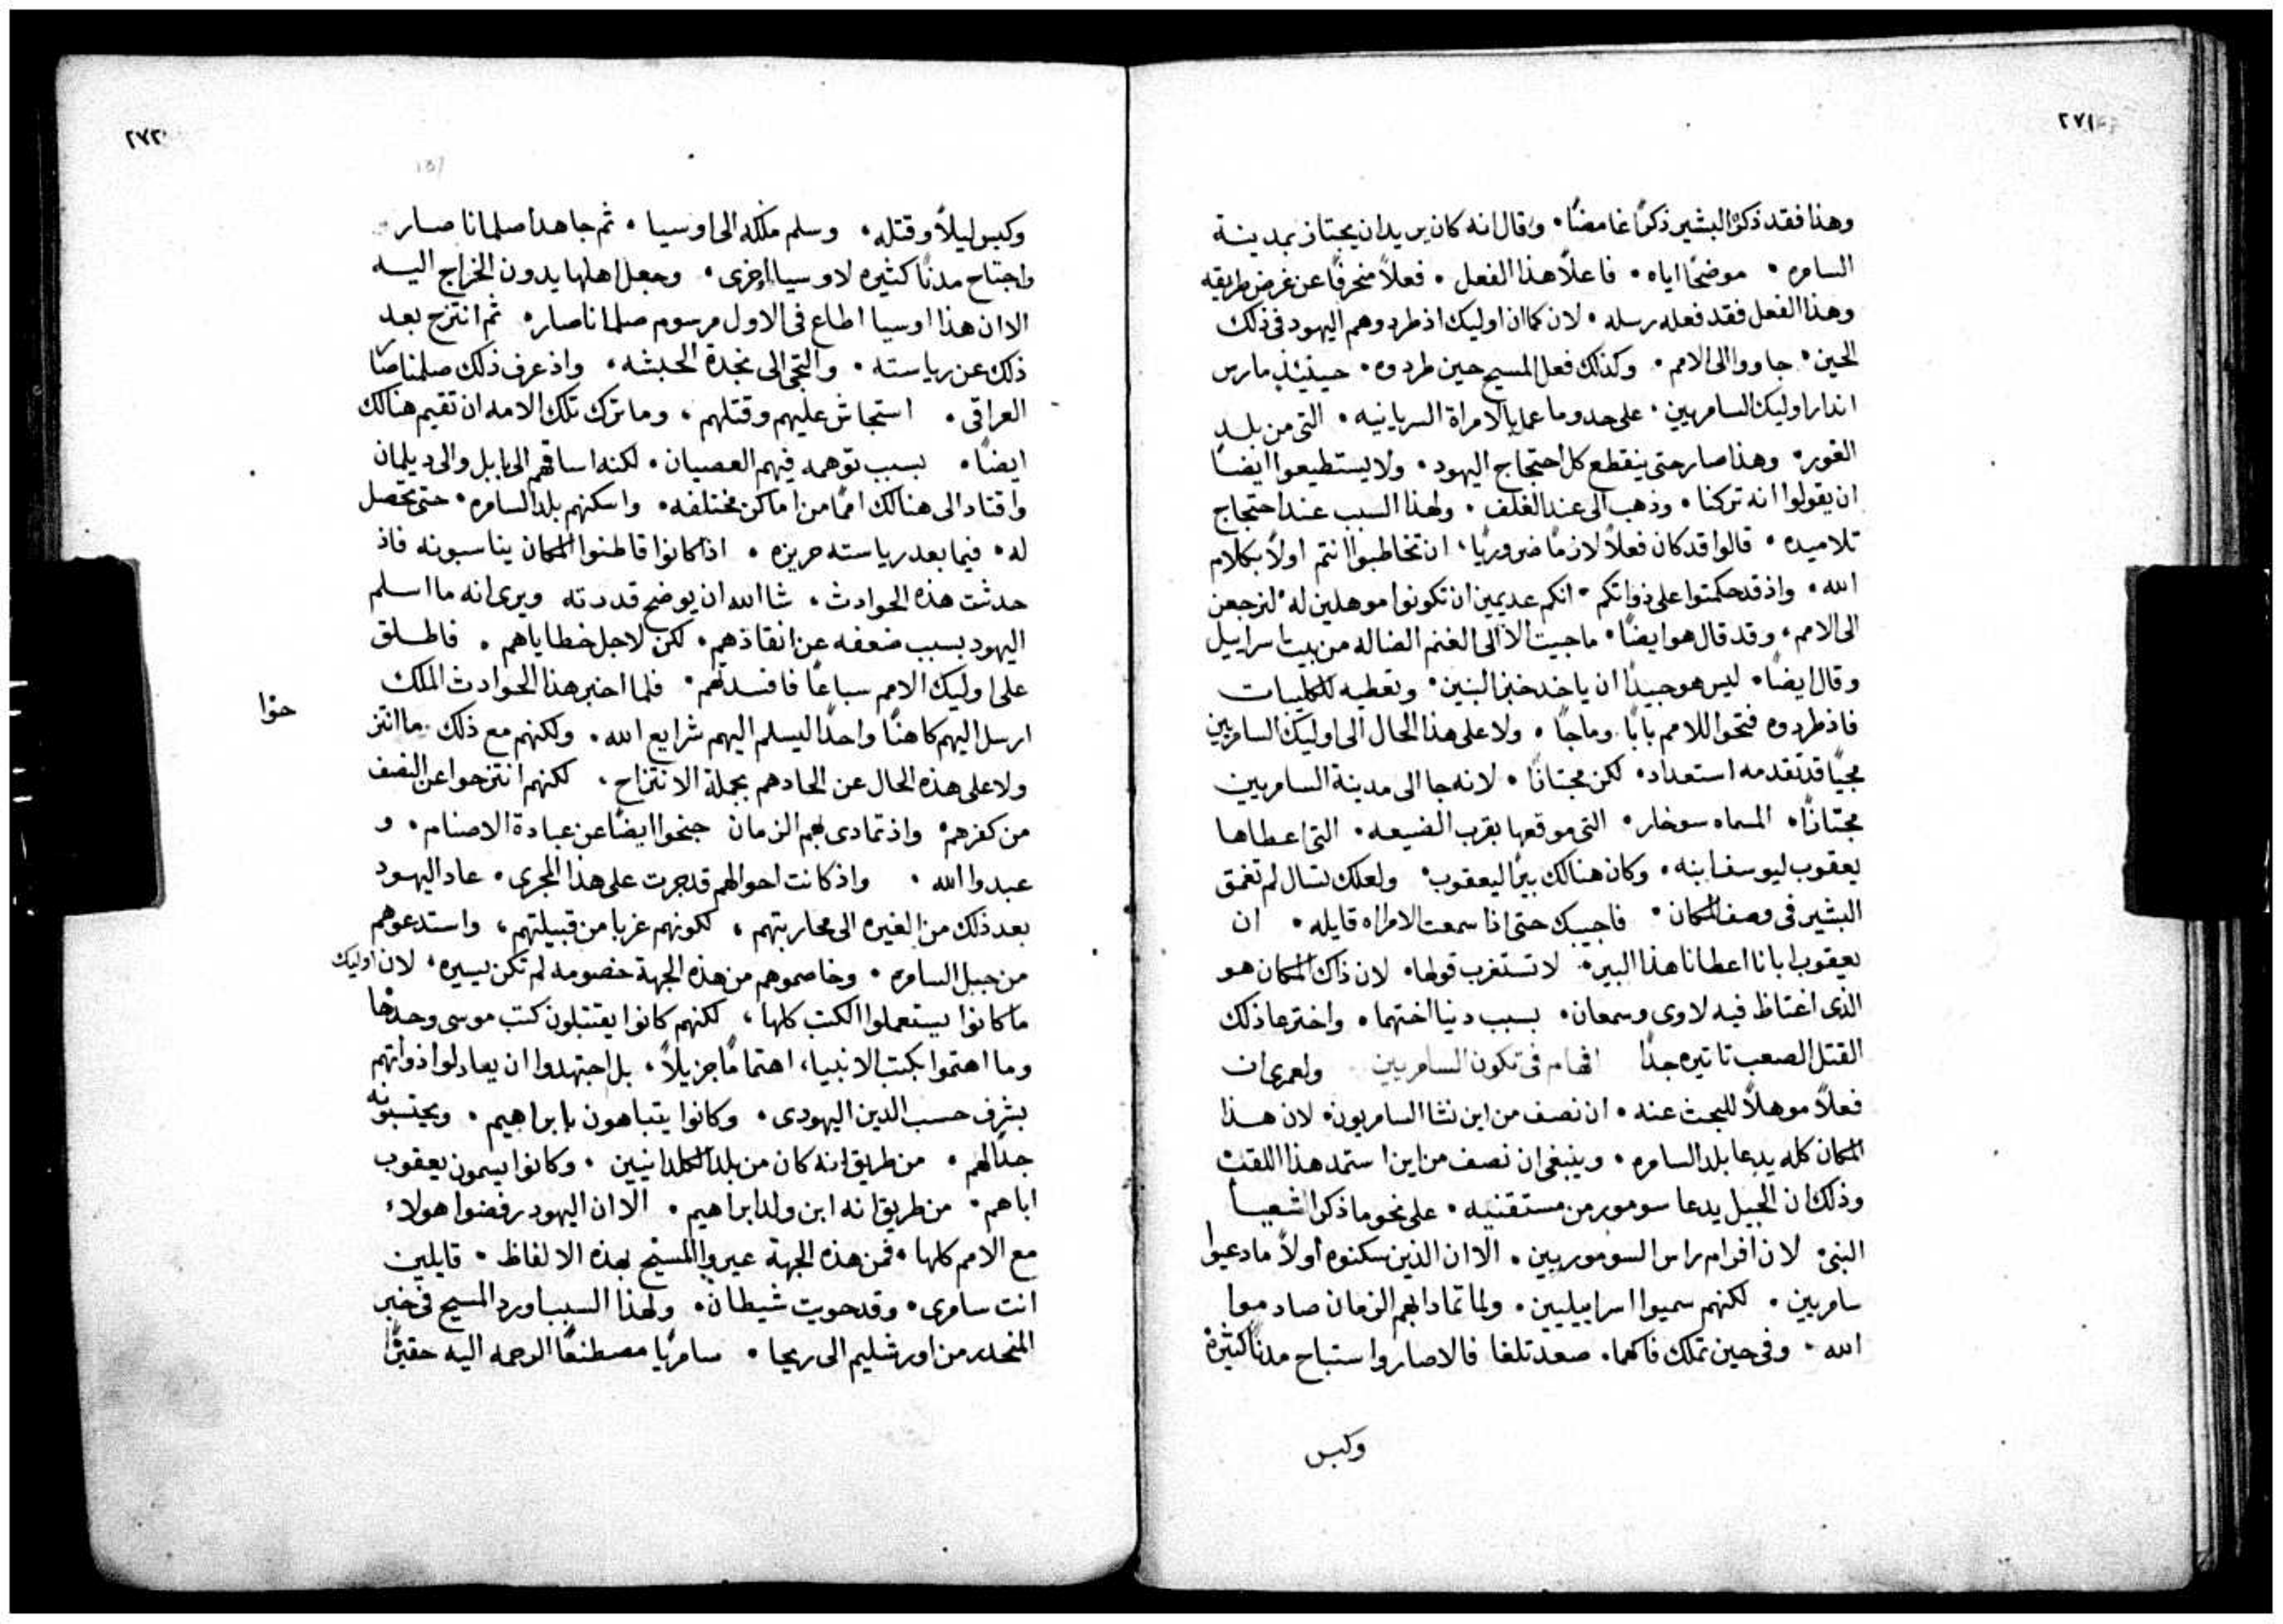 ٢٧١
وهذا فقد ذكره البشير ذكرًا غامضًا • وقال انه كان يريد ان يجتاز بمدينة
السامره • موضحًا اياه • فاعلاً هذا الفعل • فعلاً منحرفًا عن غرض طريقه
وهذا الفعل فقد فعله رسله • لان كما ان اوليك اذ طردوهم اليهود فى ذلك
الحين • جاووا الى الامم • وكذلك فعل المسيح حين طردوه • حينيذ مارس
انذار اوليك السامريين • على حدو ما عمل بالامراة السريانيه • التى من بلد
الغور • وهذا صار حتى ينقطع كل احتجاج اليهود • ولا يستطيعوا ايضًا
ان يقولوا انه تركنا • وذهب الى عند الغلف • ولهذا السبب عند احتجاج
تلاميده • قالوا قد كان فعلاً لازمًا ضروريًا • ان تخاطبوا انتم اولاً بكلام
الله • واذ قد حكمتوا على ذواتكم • انكم عديمين ان تكونوا موهلين له • لنرجعن
الى الامم • وقد قال هو ايضًا • ما جيت الا الى الغنم الضاله من بيت اسراييل
وقال ايضًا • ليس هو جيدًا ان ياخد خبز البنين • ونعطيه للكليبات
فاذ طردوه فتحوا للامم بابًا • وما جا • ولا على هذا الحال الى اوليك السامريين
مجيًا قد تقدمه استعداد • لكن مجتازًا • لانه جا الى مدينة السامريين
مجتازًا • المسماه سوخار • التى موقعها بقرب الضيعه • التى اعطاها
يعقوب ليوسف ابنه • وكان هنالك بيرًا ليعقوب • ولعلك تسال لم تغمق
البشير فى وصف المكان • فاجيبك حتى اذا سمعت الامراه قايله • ان
يعقوب ابانا اعطانا هذا البير • لا تستغرب قولها • لان ذاك المكان هو
الذى اغتاظ فيه لاوى وسمعان • بسبب دينا اختهما • واخترعا ذلك
القتل الصعب تاتيره جدًا فى تكون السامريين ولعمرى ان
فعلاً موهلاً للبحث عنه • ان نصف من اين نشا السامريون • لان هذا
المكان كله يدعا بلد السامره • وينبغى ان نصف من اين استمد هذا اللقب
وذلك ان الجبيل يدعا سومور من مستقنيه • على نحو ما ذكر اشعيا
النبى • لان افرام راس السوموريين • الا ان الذين سكنوه اولاً ما دعيوا
سامريين • لكنهم سميوا اسراييليين • ولما تمادا بهم الزمان صادموا
الله • وفى حين تملك فاكهما • صعد تلغا فالاصار واستباح مدنًا كثيرة
وكبس
٢٧٢
وكبس ليلاً وقتله • وسلم ملكه الى اوسيا • ثم جاهدا صلمانا صار
واجتاح مدنًا كثيره لاوسيا اخرى • وجعل اهلها يدون الخراج اليه
الا ان هذا اوسيا اطاع فى الاول مرسوم صلمانا صار • ثم انتزح بعد
ذلك عن رياسته • والتجى الى نجدة الحبشه • واذ عرف ذلك صلمناصار
العراقى • استجاش عليهم وقتلهم • وما ترك تلك الامه ان تقيم هنالك
ايضًا • بسبب توهمه فيهم العصيان • لكنه اساقهم الى بابل والى ديلمان
واقتاد الى هنالك اممًا من اماكن مختلفه • واسكنهم بلد السامره • حتى تحصل
له • فيما بعد رياسته حريزه • اذا كانوا قاطنوا المكان يناسبونه فاذ
حدثت هذه الحوادث • شا الله ان يوضح قدرته ويرى انه ما اسلم
اليهود بسبب ضعفه عن انقاذهم • لكن لاجل خطاياهم • فاطلق
على اوليك الامم سباعًا فافسدتهم • فلما اخبر هذا الحوادث الملك
حوا
ارسل اليهم كاهنًا واحدًا ليسلم اليهم شرايع الله • ولكنهم مع ذلك ما انتز
ولا على هذه الحال عن الحادهم بجملة الانتزاح • لكنهم انتزحوا عن النصف
من كفرهم • واذ تمادى بهم الزمان جنحوا ايضًا عن عبادة الاصنام • و
عبدوا الله • واذ كانت احوالهم قد جرت على هذا المجرى • عاد اليهود
بعد ذلك من الغيره الى محاربتهم • لكونهم غربا من قبيلتهم • واستدعوهم
من جبل السامره • وخاصموهم من هذه الجهة خصومه لم تكن يسيره • لان اوليك
ما كانوا يستعملوا الكتب كلها • لكنهم كانوا يقتبلون كتب موسى وحدها
وما اهتموا بكتب الانبيا، اهتمامًا جزيلاً • بل اجتهدوا ان يعادلوا ذواتهم
بشرف حسب الدين اليهودى • وكانوا يتباهون بابراهيم • ويحتسبونه
جدًا لهم • من طريق انه كان من بلد الكلدانيين • وكانوا يسمون يعقوب
اباهم • من طريق انه ابن ولد ابراهيم • الا ان اليهود رفضوا هولاء
مع الامم كلها • فمن هذه الجهة عيروا المسيح بهذه الالفاظ • قايلين
انت سامرى • وقد حويت شيطان • ولهذا السبب اورد المسيح فى خبر
المنحدر من اورشليم الى ريحا • سامريًا مصطنعًا الرحمه اليه حقيرًا